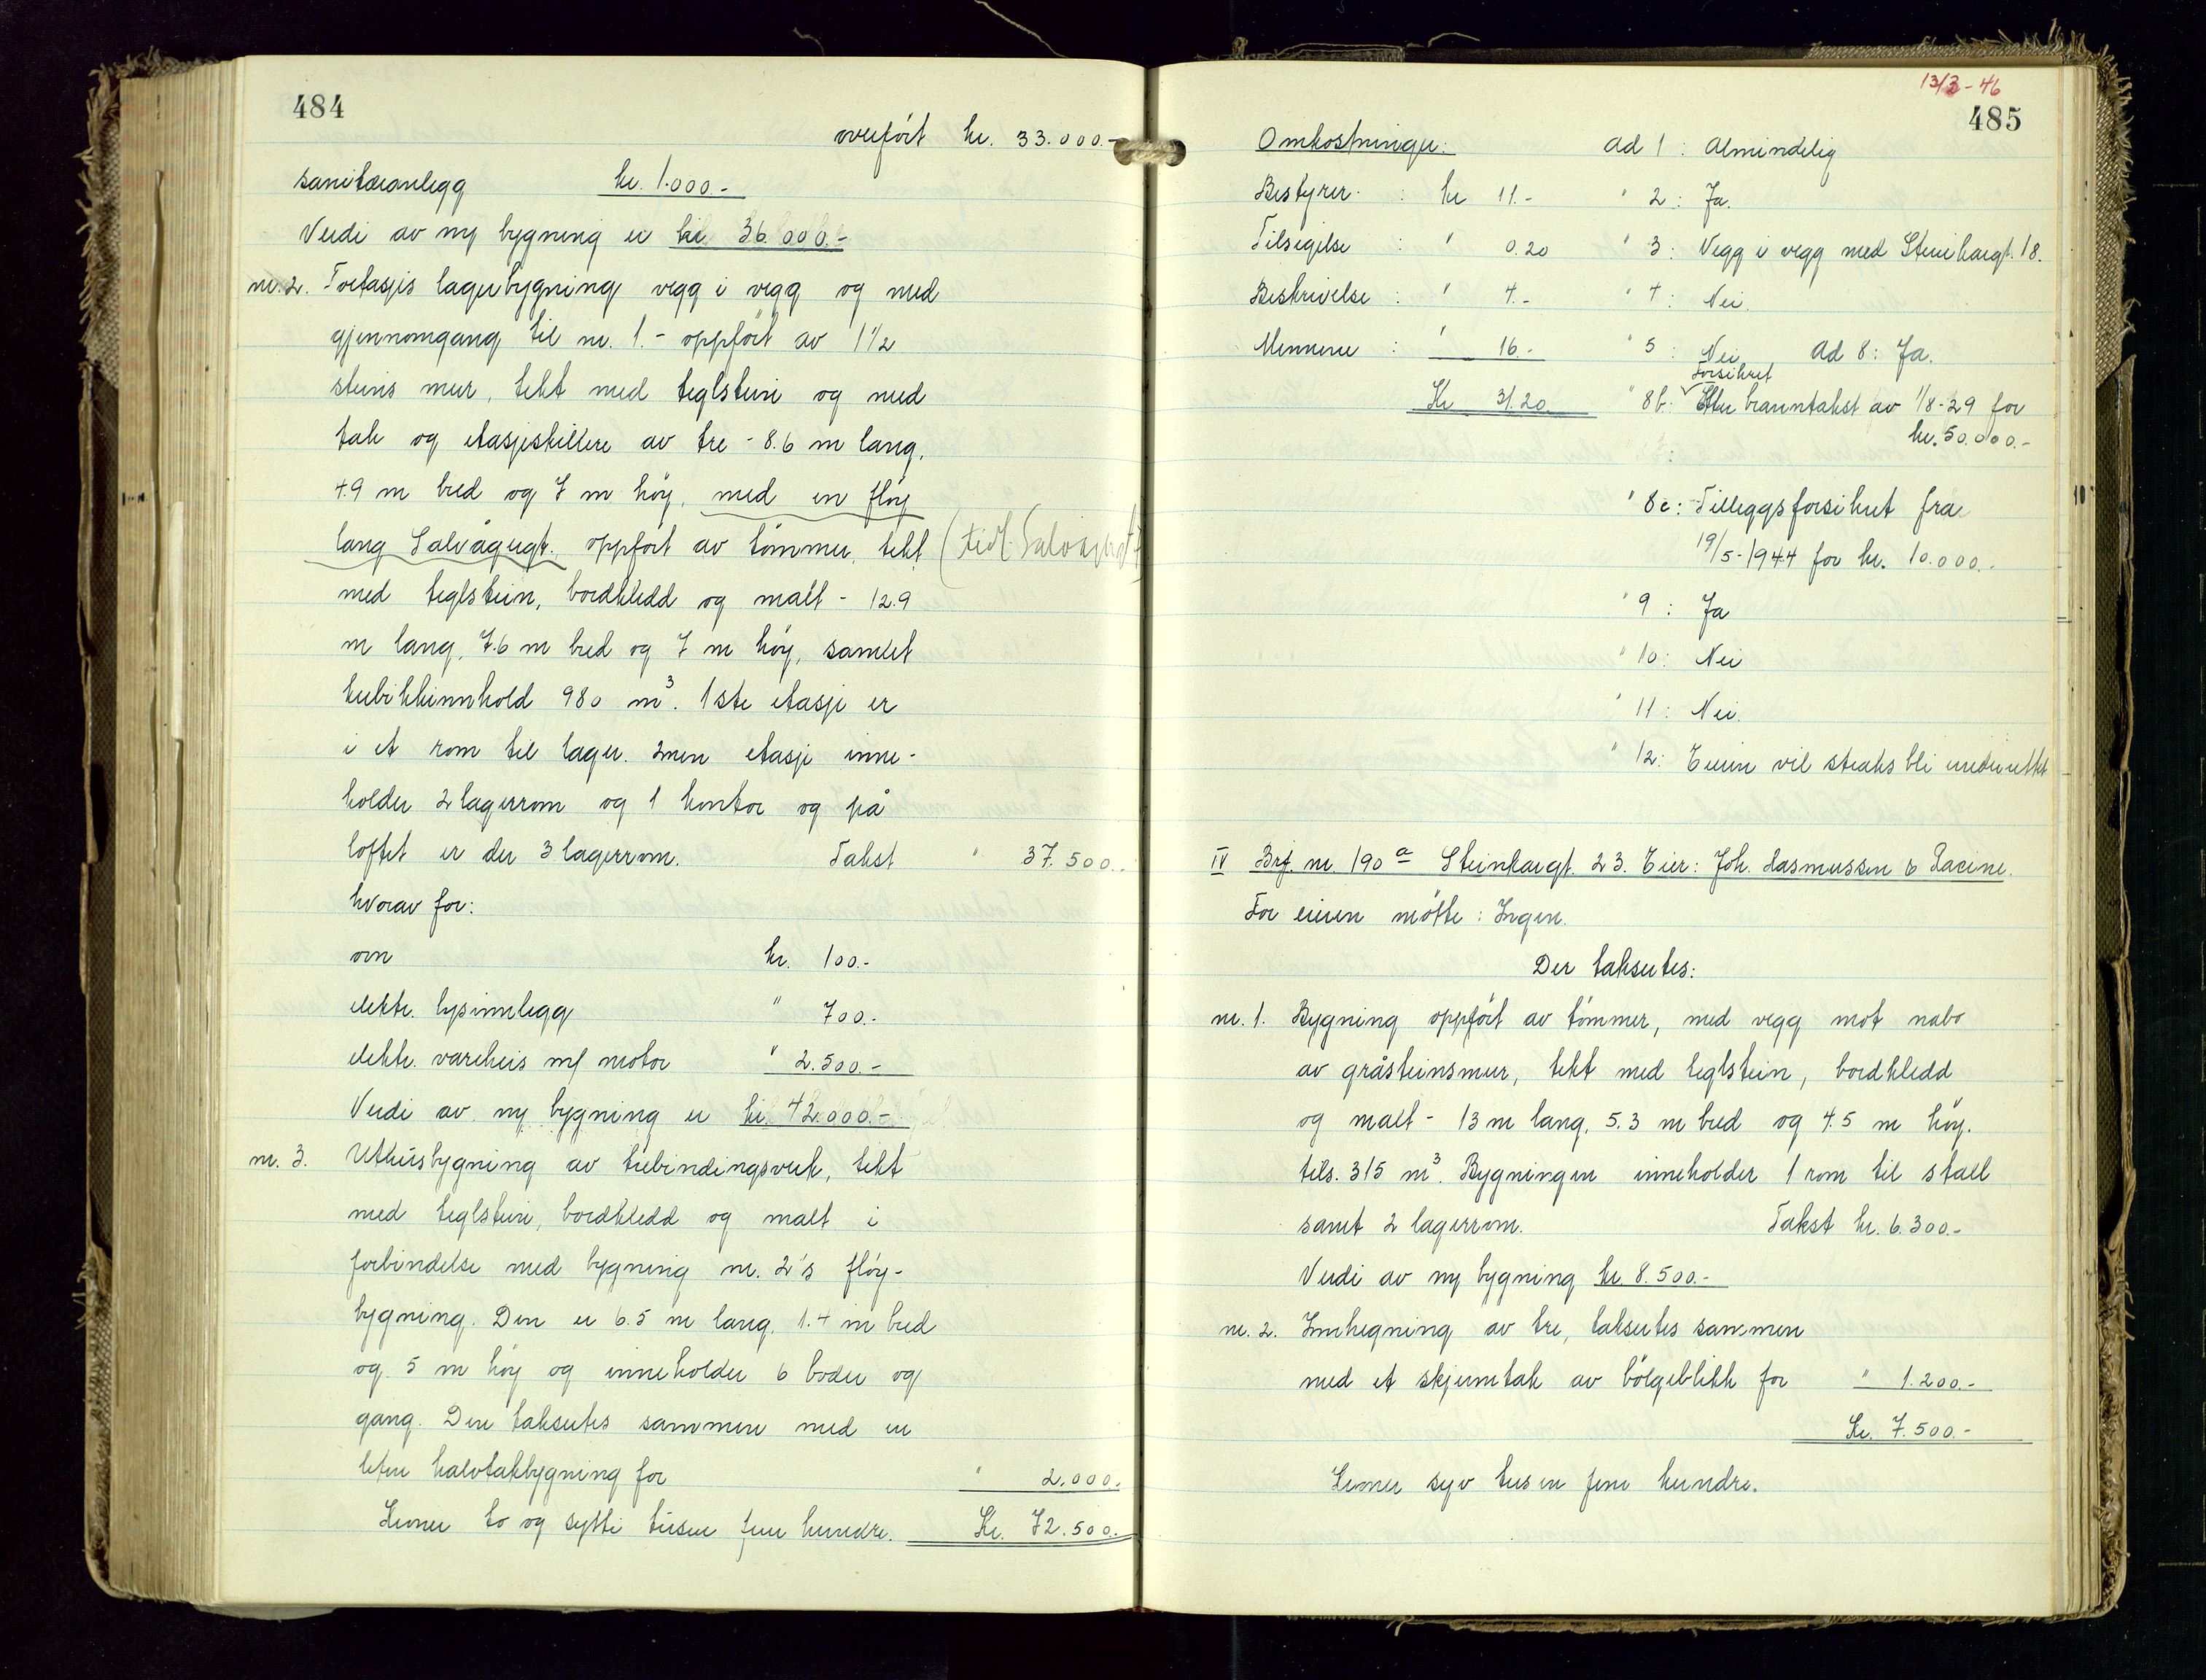 484
overført kr. 33.000.-
sanitæranlegg kr. 1.000.-
Verdi av ny bygning er kr. 36.000.-
nr. 2. Toetasjes lagerbygning vegg i vegg og med
gjennomgang til nr. 1. - oppført av 1 1/2
steins mur, tekt med teglstein og med
tak og etasjeskillere av tre - 8.6 m lang,
4.9 m bred og 7 m høy, med en fløy
lang Salvågergt. oppført av tømmer, tekt (tidl.
med teglstein, bordkledd og malt - 12.9
m lang, 7.6 m bred og 7 m høy, samlet
kubikkinnhold 980 m³. 1ste etasje er
i et rom til lager. 2nen etasje inne-
holder 2 lagerrom og 1 kontor og på
loftet er der 3 lagerrom. Takst " 37.500.-
hvorav for:
ovn kr. 100.-
elektr. lysinnlegg " 700.-
elektr. vareheis m/ motor " 2.500.-
Verdi av ny bygning er kr. 42.000.-
nr. 3. Uthusbygning av trebindingsverk, tekt
med teglstein, bordkledd og malt i
forbindelse med bygning nr. 2's fløy-
bygning. Den er 6.5 m lang, 1.4 m bred
og 5 m høy og inneholder 6 boder og
gang. Den takseres sammen med en
liten halvtakbygning for " 2.000.-
Kroner to og sytti tusen fem hundre. Kr. 72.500.-
13/3-46
485
Omkostninger: Ad 1: Almindelig
Bestyrer : kr 11.- " 2: Ja.
Tilsigelse : " 0.20 " 3: Vegg i vegg med Steinkargt. 18.
Beskrivelse : " 4.- " 4: Nei.
Mennene : " 16.- " 5: Nei Ad 8: Ja.
Forsikret
Kr 31.20 " 8b: Etter branntakst av 1/8-29 for
kr. 50.000.-
" 8c: Tilleggsforsikret fra
19/5-1944 for kr. 10.000.-
" 9: Ja
" 10: Nei
" 11: Nei.
" 12: Eieren vil straks bli underrettet
IV Brf. nr. 190a Steinkargt. 23. Eier: Joh. Rasmussen & Racine.
For eieren møtte: Ingen.
Der takseres:
nr. 1. Bygning oppført av tømmer, med vegg mot nabo
av gråsteinsmur, tekt med teglstein, bordkledd
og malt - 13 m lang, 5.3 m bred og 4.5 m høy.
tils. 315 m³. Bygningen inneholder 1 rom til stall
samt 2 lagerrom. Takst kr. 6.300.-
Verdi av ny bygning kr. 8.500.-
nr. 2. Innhegning av tre, takseres sammen
med et skjermtak av bølgeblikk for " 1.200.-
Kr. 7.500.-
Kroner syv tusen fem hundre.